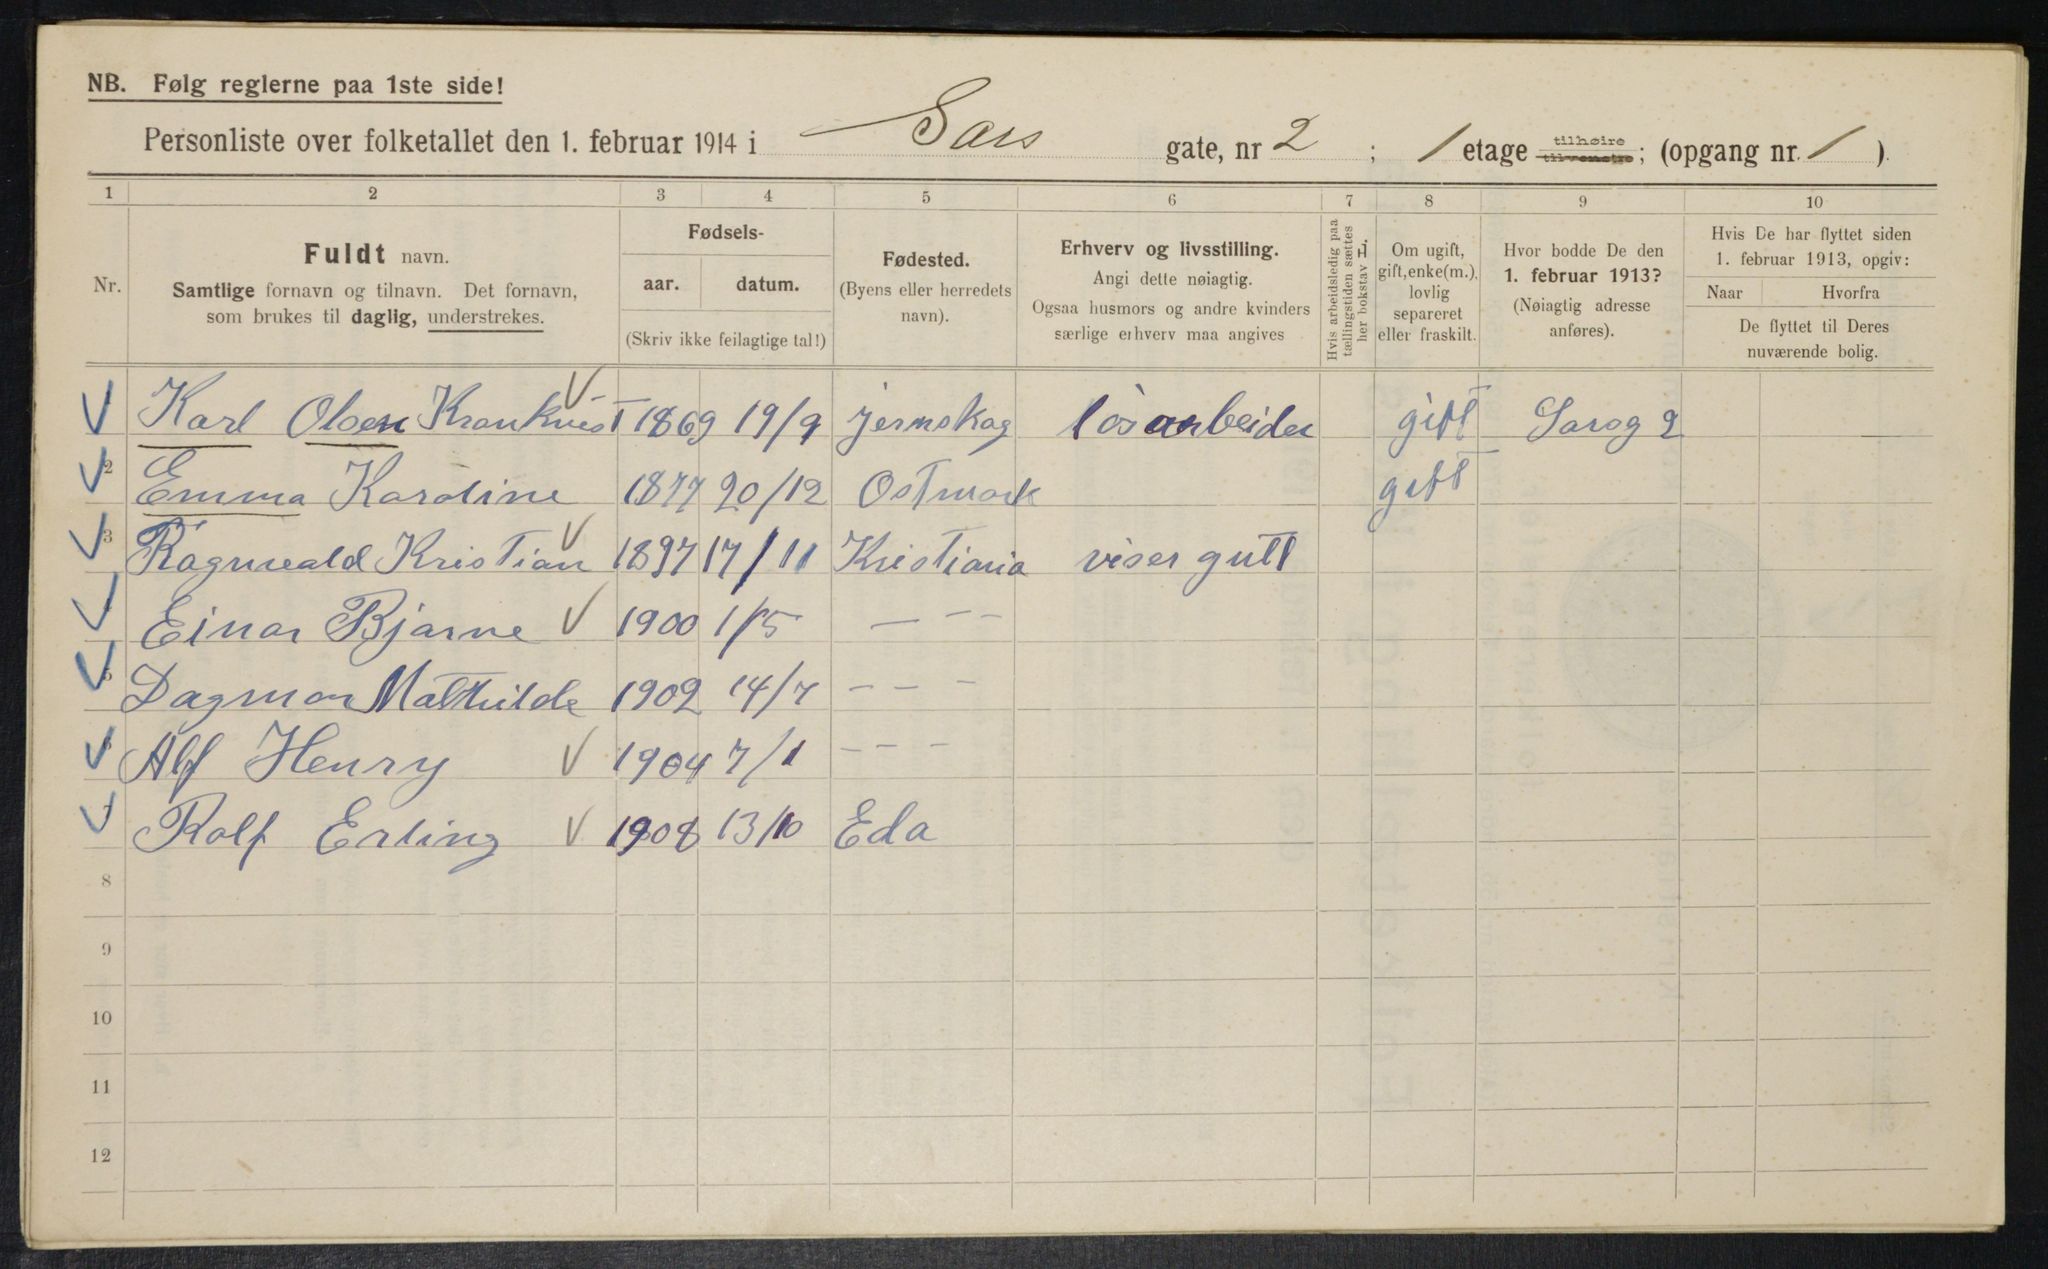 NB. Følg reglerne paa 1ste side!
Personliste over folketallet den 1. februar 1914 i Sars gate, nr 2 ; 1 etage tilhøire tilvenstre; (opgang nr. 1 ).
1 2 3 4 5 6 7 8 9 10
Nr.
Fuldt navn.
Samtlige fornavn og tilnavn. Det fornavn,
som brukes til daglig, understrekes.
Fødsels-
aar. datum.
(Skriv ikke feilagtige tal!)
Fødested.
(Byens eller herredets
navn).
Erhverv og livsstilling.
Angi dette nøiagtig.
Ogsaa husmors og andre kvinders
særlige erhverv maa angives
Hvis arbeidsledig paa
tællingstiden sættes
her bokstav L.
Om ugift,
gift, enke(m.),
lovlig
separeret
eller fraskilt.
Hvor bodde De den
1. februar 1913?
(Nøiagtig adresse
anføres).
Hvis De har flyttet siden
1. februar 1913, opgiv:
Naar Hvorfra
De flyttet til Deres
nuværende bolig.
Karl Olsen Krankvist 1869 19/9 jernskog løsarbeider gift Sarsg 2
2 Emma Karoline 1877 20/12 Ostmark gift
3 Ragnvald Kristian 1897 17/11 Kristiania viser gutt
4 Einar Bjarne 1900 1/5 — — —
5 Dagmar Mathilde 1902 14/7 — — —
6 Alf Henry 1904 7/1 — — —
7 Rolf Erling 1908 13/10 Eda
8
9
10
11
12